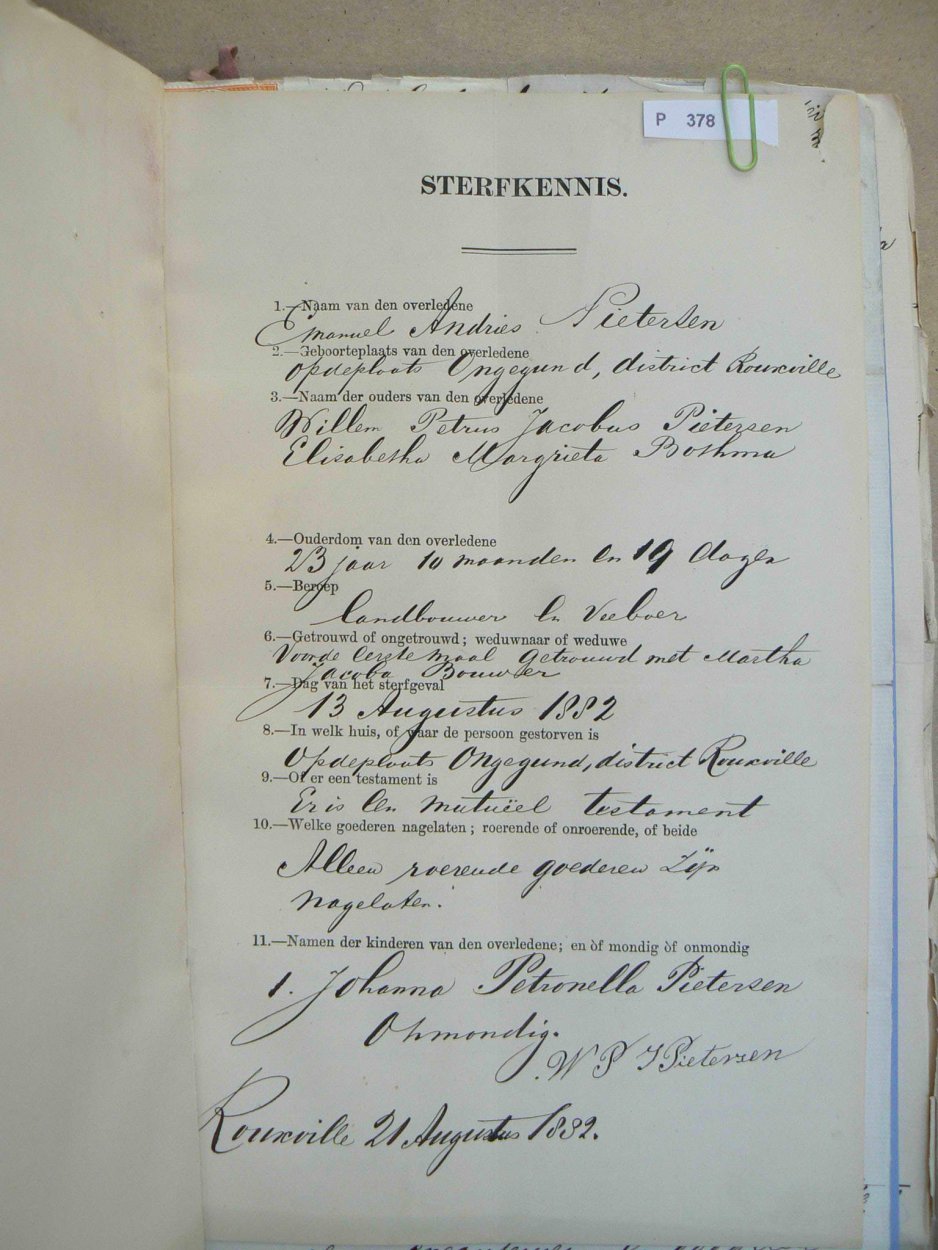 P 378
STERFKENNIS.
1.—Naam van den overledene
Emanuel Andries Pietersen
2.—Geboorteplaats van den overledene
Opdeplaats Ongegund, district Rouxville
3.—Naam der ouders van den overledene
Willem Petrus Jacobus Pietersen
Elisabetha Margrieta Bothma
4.—Ouderdom van den overledene
23 jaar 10 maanden en 19 dagen
5.—Beroep
Landbouwer en Veeboer
6.—Getrouwd of ongetrouwd; weduwnaar of weduwe
Voorde Eerste maal Getrouwd met Martha
Jacoba Bouwer
7.—Dag van het sterfgeval
13 Augustus 1882
8.—In welk huis, of waar de persoon gestorven is
Opdeplaats Ongegund, district Rouxville
9.—Of er een testament is
Er is Een Mutuëel testament
10.—Welke goederen nagelaten; roerende of onroerende, of beide
Alleen roerende goederen Zÿn
nagelaten.
11.—Namen der kinderen van den overledene; en òf mondig òf onmondig
1. Johanna Petronella Pietersen
Onmondig.
W P J Pietersen
Rouxville 21 Augustus 1882.